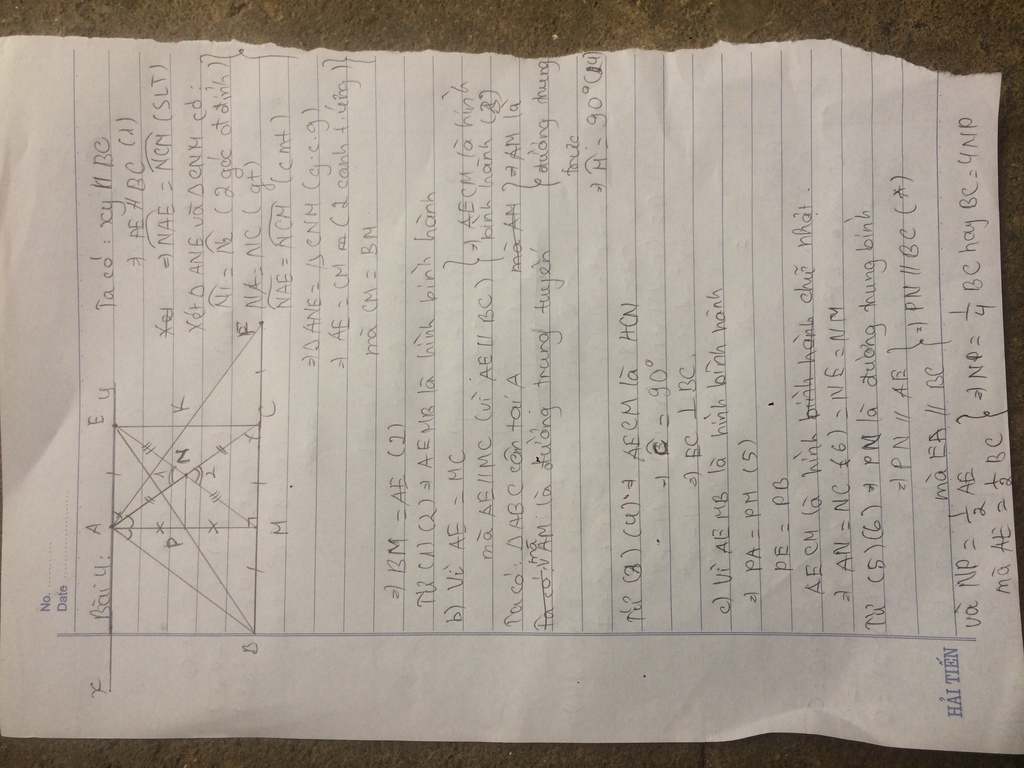 No.
Date
Bài 4:
x A E y
P N K
1
2
B M C F
Ta có: xy // BC
⇒ AE // BC (1)
⇒ NAE = NCM (SLT)
Xét Δ ANE và Δ CNM có:
N1 = N2 (2 góc đ đỉnh)
NA = NC (gt)
NAE = NCM (cmt)
⇒ Δ ANE = Δ CNM (g.c.g)
⇒ AE = CM (2 cạnh t ứng)
mà CM = BM
⇒ BM = AE (2)
Từ (1)(2) ⇒ AEMB là hình bình hành
b) Vì AE = MC
mà AE // MC (vì AE // BC)
⇒ AECM là hình bình hành (3)
Ta có: Δ ABC cân tại A
mà AM là đường trung tuyến
⇒ AM là đường trung trực
⇒ M = 90° (4)
Từ (3)(4) ⇒ AECM là HCN
⇒ C = 90°
⇒ EC ⊥ BC
c) Vì AEMB là hình bình hành
⇒ PA = PM (5)
PE = PB
AECM là hình bình hành chữ nhật.
⇒ AN = NC (6) = NE = NM
Từ (5)(6) ⇒ PN là đường trung bình
⇒ PN // AE
mà EA // BC
⇒ PN // BC (*)
và NP = 1/2 AE
mà AE = 1/2 BC
⇒ NP = 1/4 BC hay BC = 4NP
HẢI TIẾN